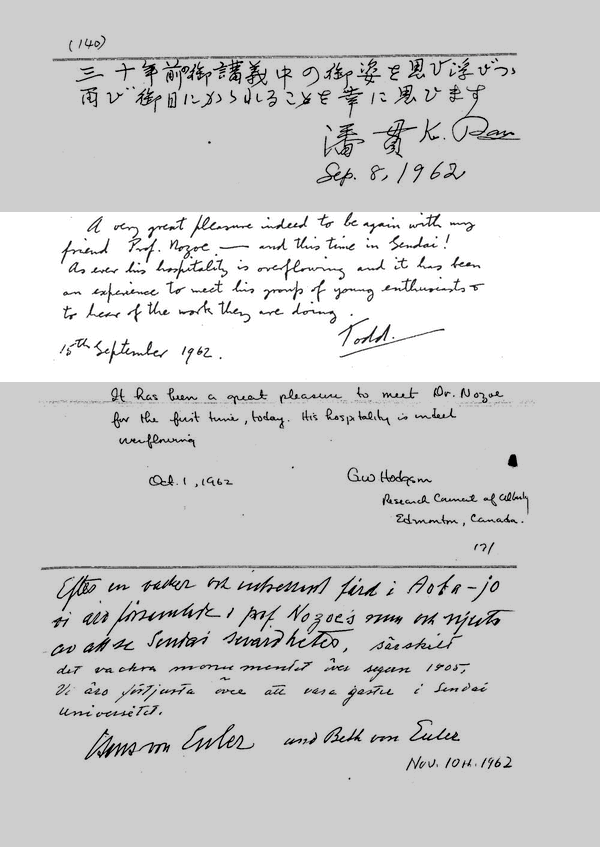 (140)
三十年前の御講義中の御姿を思び浮びつゝ
再び御目にかゝられることを幸に思びます
潘貫 K. Pan
Sep. 8, 1962
A very great pleasure indeed to be again with my
friend Prof. Nozoe — and this time in Sendai!
As ever his hospitality is overflowing and it has been
an experience to meet his group of young enthusiasts &
to hear of the work they are doing.
Todd.
15th September 1962.
It has been a great pleasure to meet Dr. Nozoe
for the first time, today. His hospitality is indeed
overflowing
Oct. 1, 1962
GW Hodgson
Research Council of Alberta
Edmonton, Canada.
Efter en vacker och intressant färd i Aoba-jo
vi äro församlade i prof. Nozoe's rum och njuta
av att se Sendai sevärdheter, särskilt
det vackra monumentet över segern 1905,
Vi äro förtjusta över att vara gäster i Sendai
universitet.
Hans von Euler and Beth von Euler
Nov. 10th. 1962